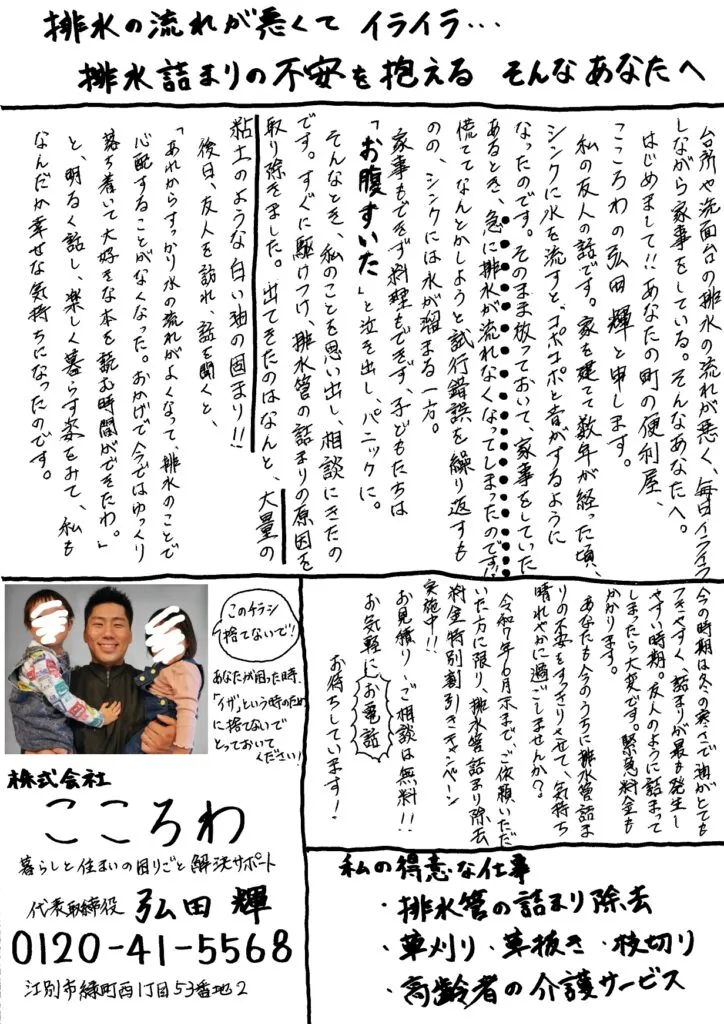 排水の流れが悪くて イライラ…
排水詰まりの不安を抱える そんなあなたへ
台所や洗面台の排水の流れが悪く、毎日イライラ
しながら家事をしている。そんなあなたへ。
はじめまして!! あなたの町の便利屋、
こころわの弘田 輝と申します。
私の友人の話です。家を建てて数年が経った頃、
シンクに水を流すと、ゴポゴポと音がするように
なったのです。そのまま放っておいて、家事をしていた
あるとき、急に排水が流れなくなってしまったのです!!
慌ててなんとかしようと試行錯誤を繰り返すも
のの、シンクには水が溜まる一方。
家事もできず料理もできず、子どもたちは
「お腹すいた」と泣き出し、パニックに。
そんなとき、私のことを思い出し、相談にきたの
です。すぐに駆けつけ、排水管の詰まりの原因を
取り除きました。出てきたのはなんと、大量の
粘土のような白い油の固まり!!
後日、友人を訪れ、話を聞くと、
「あれからすっかり水の流れがよくなって、排水のことで
心配することがなくなった。おかげで今ではゆっくり
落ち着いて大好きな本を読む時間ができたわ。」
と、明るく話し、楽しく暮らす姿をみて、私も
なんだか幸せな気持ちになったのです。
今の時期は冬の寒さで油がとても
つきやすく、詰まりが最も発生し
やすい時期。友人のように詰まって
しまったら大変です。緊急料金も
かかります。
あなたも今のうちに排水管詰ま
りの不安をすっきりさせて、気持ち
晴れやかに過ごしませんか?
令和7年 月末まで、ご依頼いただ
いた方に限り、排水管詰まり除去
料金特別割引きキャンペーン
実施中!!
お見積り・ご相談は無料!!
お気軽にお電話
お待ちしています!
このチラシ
捨てないで!
あなたが困った時、
「イザ」という時のため
に捨てないで
とっておいて
ください!
株式会社
こころわ
暮らしと住まいの困りごと解決サポート
代表取締役 弘田 輝
0120-41-5568
江別市緑町西1丁目53番地2
私の得意な仕事
・排水管の詰まり除去
・草刈り・草抜き・枝切り
・高齢者の介護サービス